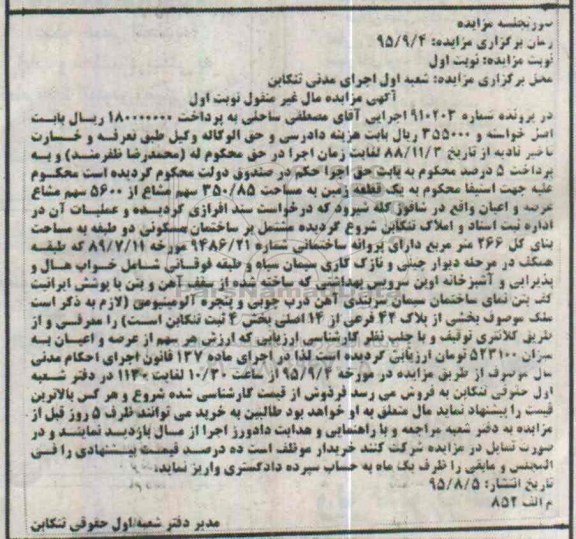 صورتجلسه مزایده
زمان برگزاری مزایده: ۹۵/۹/۴
نوبت مزایده: نوبت اول
محل برگزاری مزایده: شعبه اول اجرای مدنی تنکابن
آگهی مزایده مال غیر منقول نوبت اول
در پرونده شماره ۹۱۰۲۰۳ اجرایی آقای مصطفی ساحلی به پرداخت ۱۸۰۰۰۰۰۰۰ ریال بابت
اصل خواسته و ۳۵۵۰۰۰ ریال بابت هزینه دادرسی و حق الوکاله وکیل طبق تعرفه و خسارت
تاخیر تادیه از تاریخ ۸۸/۱۱/۳ لغایت زمان اجرا در حق محکوم له (محمدرضا ظفرمند) و به
پرداخت ۵ درصد محکوم به بابت حق اجرا حکم در صندوق دولت محکوم گردیده است محکوم
علیه جهت استیفا محکوم به یک قطعه زمین به مساحت ۳۵۰/۸۵ سهم مشاع از ۵۶۰۰ سهم مشاع
عرصه و اعیان واقع در شافوز کله شیرود که درخواست سند افرازی گردیده و عملیات آن در
اداره ثبت اسناد و املاک تنکابن شروع گردیده مشتمل بر ساختمان مسکونی دو طبقه به مساحت
بنای کل ۲۶۶ متر مربع دارای پروانه ساختمانی شماره ۹۴۸۶/۲۱ مورخه ۸۹/۷/۱۱ که طبقه
همکف در مرحله دیوار چینی و نازک کاری سیمان سیاه و طبقه فوقانی شامل خواب هال و
پذیرایی و آشپزخانه اوپن سرویس بهداشتی که ساخته شده از سقف آهن و بتن با پوشش ایرانیت
کف بتن نمای ساختمان سیمان سربندی آهن درب چوبی و پنجره آلومینیومی (لازم به ذکر است
ملک موصوف بخشی از پلاک ۴۴ فرعی از ۱۴ اصلی بخش ۴ ثبت تنکابن است) را معرفی و از
طریق کلانتری توقیف و با جلب نظر کارشناسی ارزیابی که ارزش هر سهم از عرصه و اعیان به
میزان ۵۲۳۱۰۰ تومان ارزیابی گردیده است لذا در اجرای ماده ۱۳۷ قانون اجرای احکام مدنی
مال موصوف از طریق مزایده در مورخه ۹۵/۹/۴ از ساعت ۱۰/۳۰ لغایت ۱۱۳۰ در دفتر شعبه
اول حقوقی تنکابن به فروش می رسد فردوش از قیمت کارشناسی شده شروع و هر کس بالاترین
قیمت را پیشنهاد نماید مال متعلق به او خواهد بود طالبین به خرید می توانند ظرف ۵ روز قبل از
مزایده به دفتر شعبه مراجعه و با راهنمایی و هدایت دادورز اجرا از مال بازدید نمایند و در
صورت تمایل در مزایده شرکت کنند خریدار موظف است ده درصد قیمت پیشنهادی را فی
المجلس و مابقی را ظرف یک ماه به حساب سپرده دادگستری واریز نماید.
تاریخ انتشار: ۹۵/۸/۵
م الف ۸۵۲
مدیر دفتر شعبه اول حقوقی تنکابن